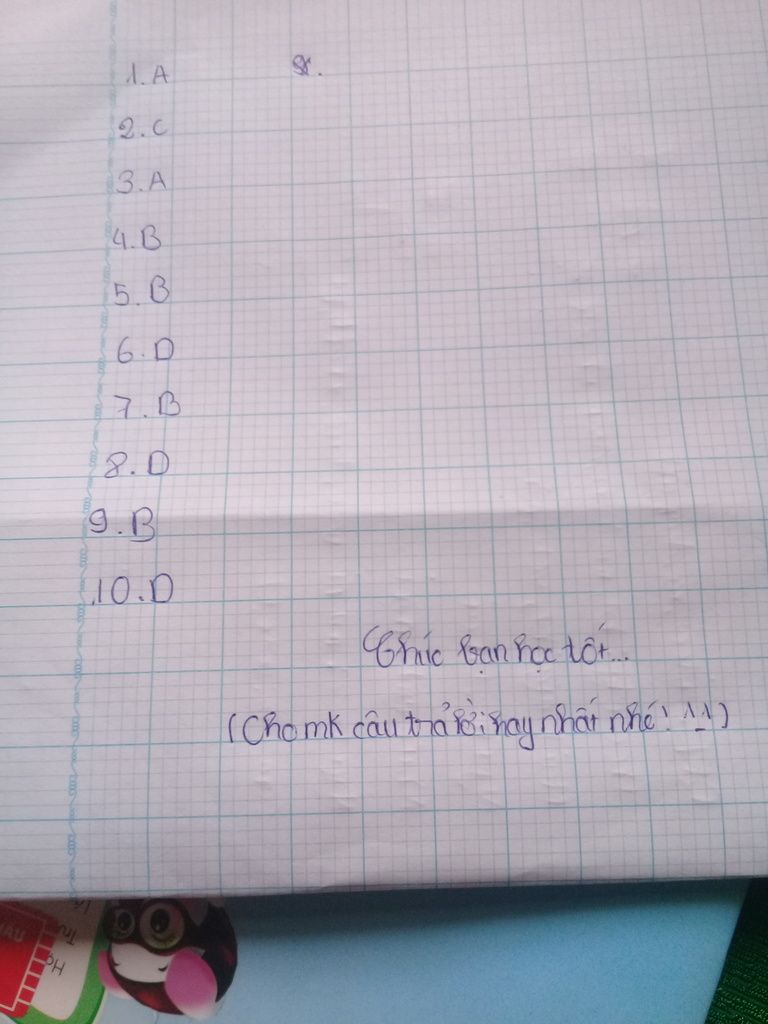 1. A
2. C
3. A
4. B
5. B
6. D
7. B
8. D
9. B
10. D
Chúc bạn học tốt...
(Cho mk câu trả lời hay nhất nhé! ^_^)